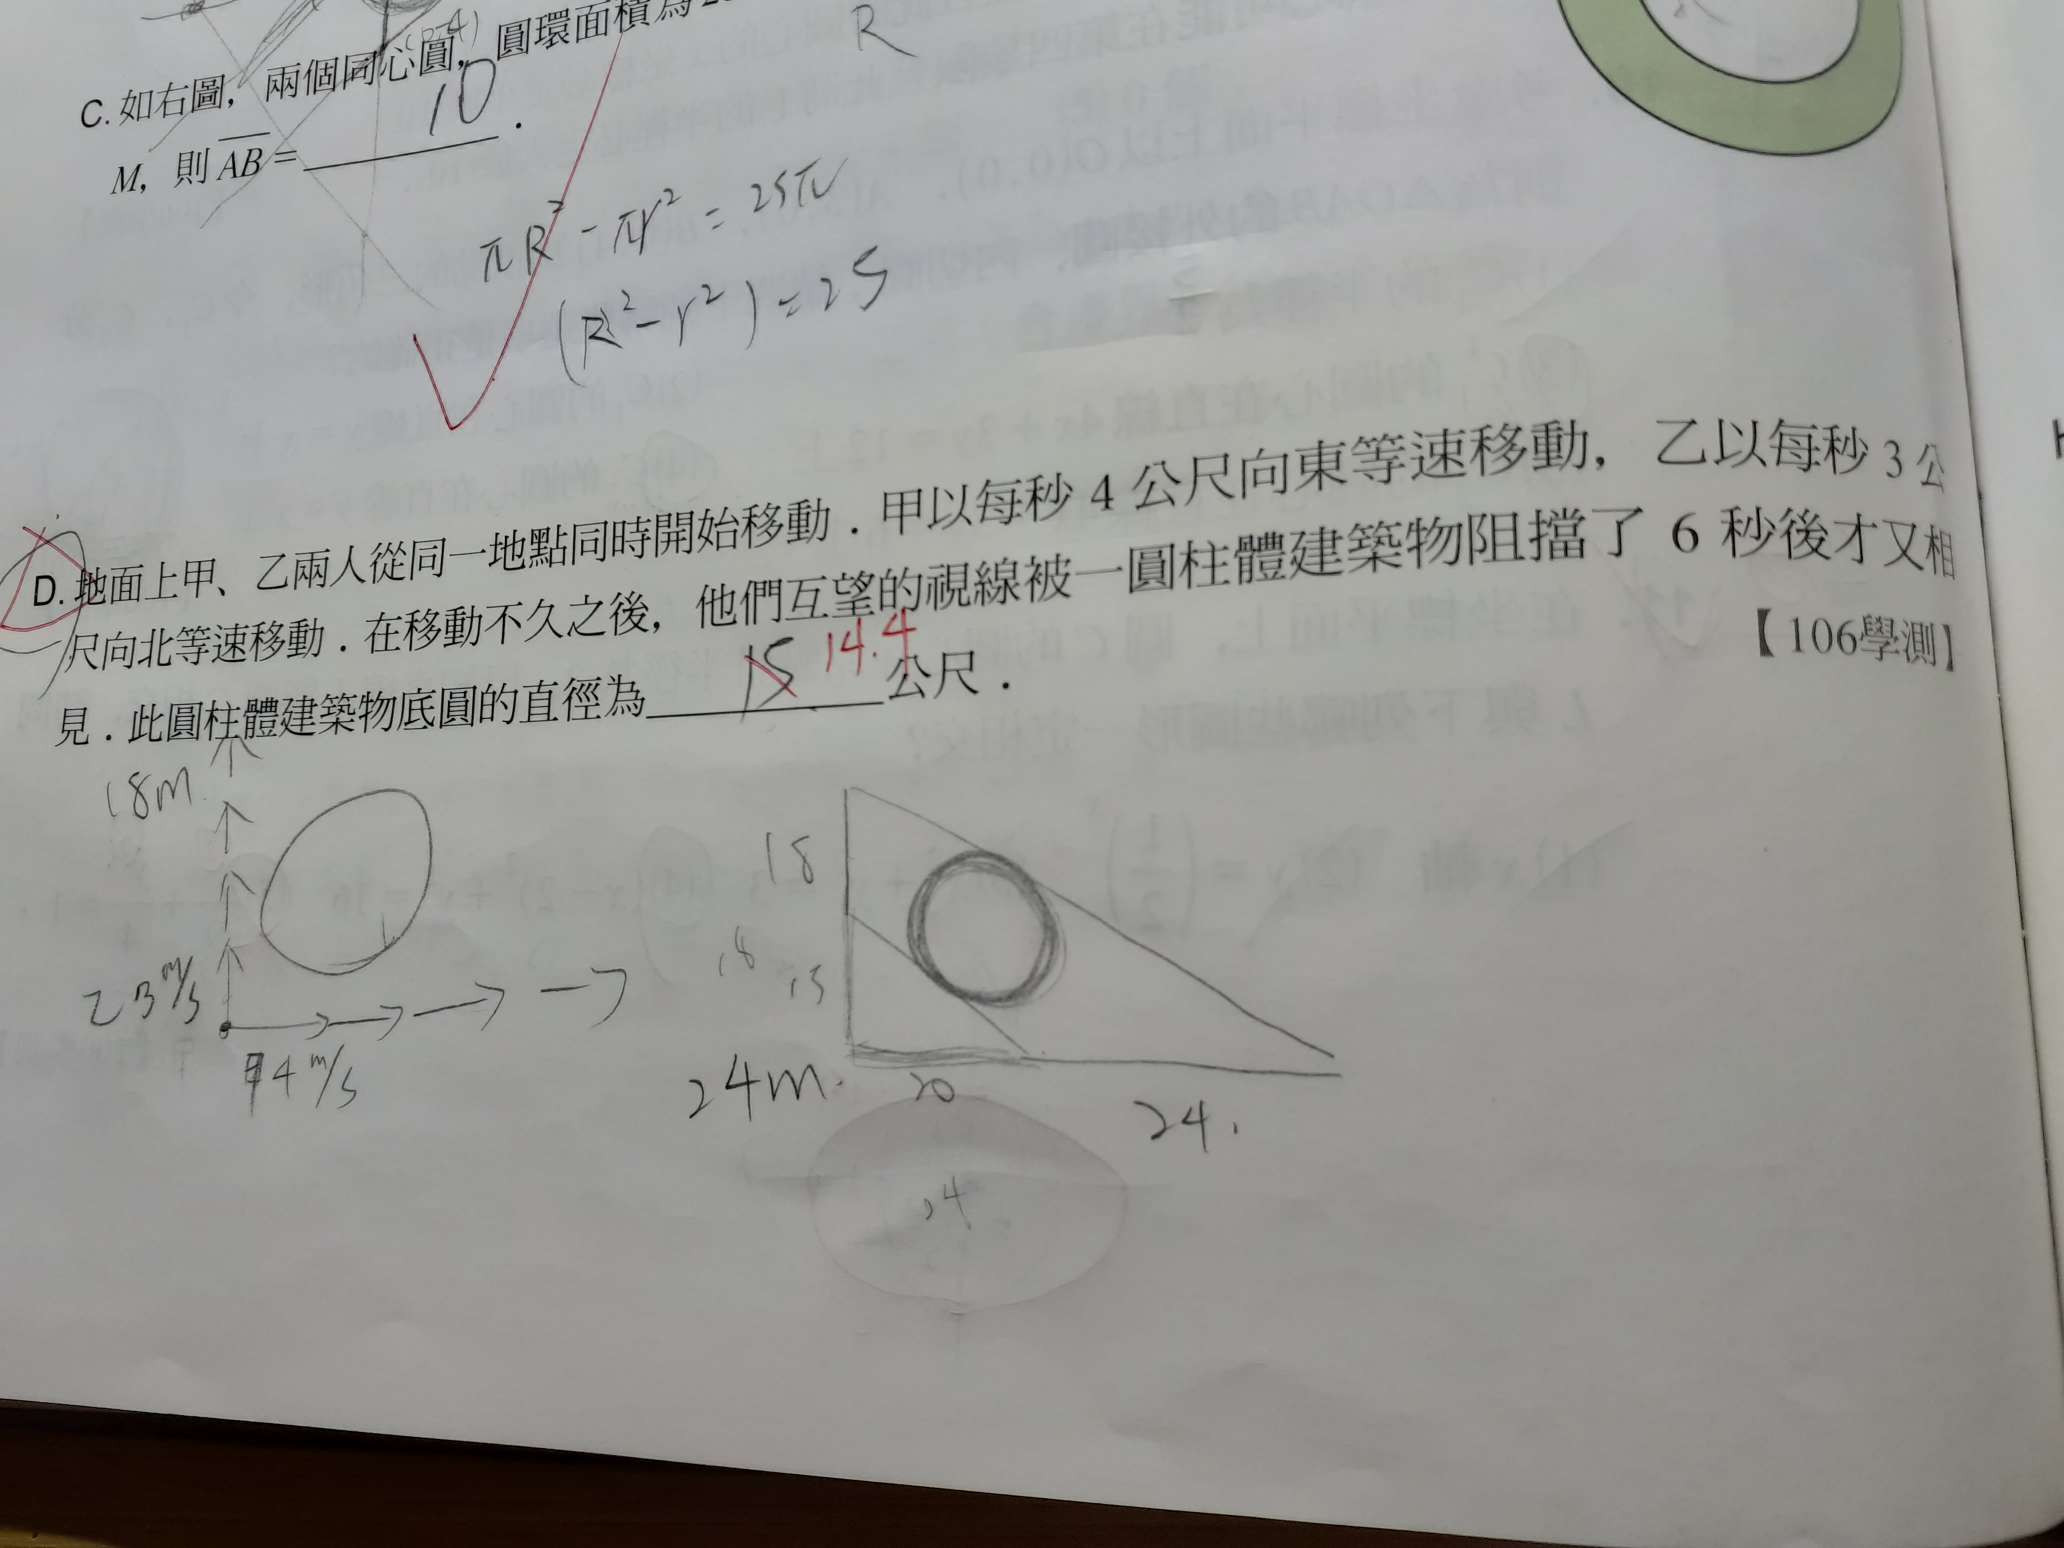 (r-4)
C. 如右圖，兩個同心圓，圓環面積為2
R
M，則 AB = 10 .
πR² - πr² = 25π
(R² - r²) = 25
D. 地面上甲、乙兩人從同一地點同時開始移動．甲以每秒 4 公尺向東等速移動，乙以每秒 3 公
尺向北等速移動．在移動不久之後，他們互望的視線被一圓柱體建築物阻擋了 6 秒後才又相
見．此圓柱體建築物底圓的直徑為 15 14.4 公尺．
【106學測】
18m
乙 3 m/s
甲 4 m/s
18
18
15
24m.
20
24.
24